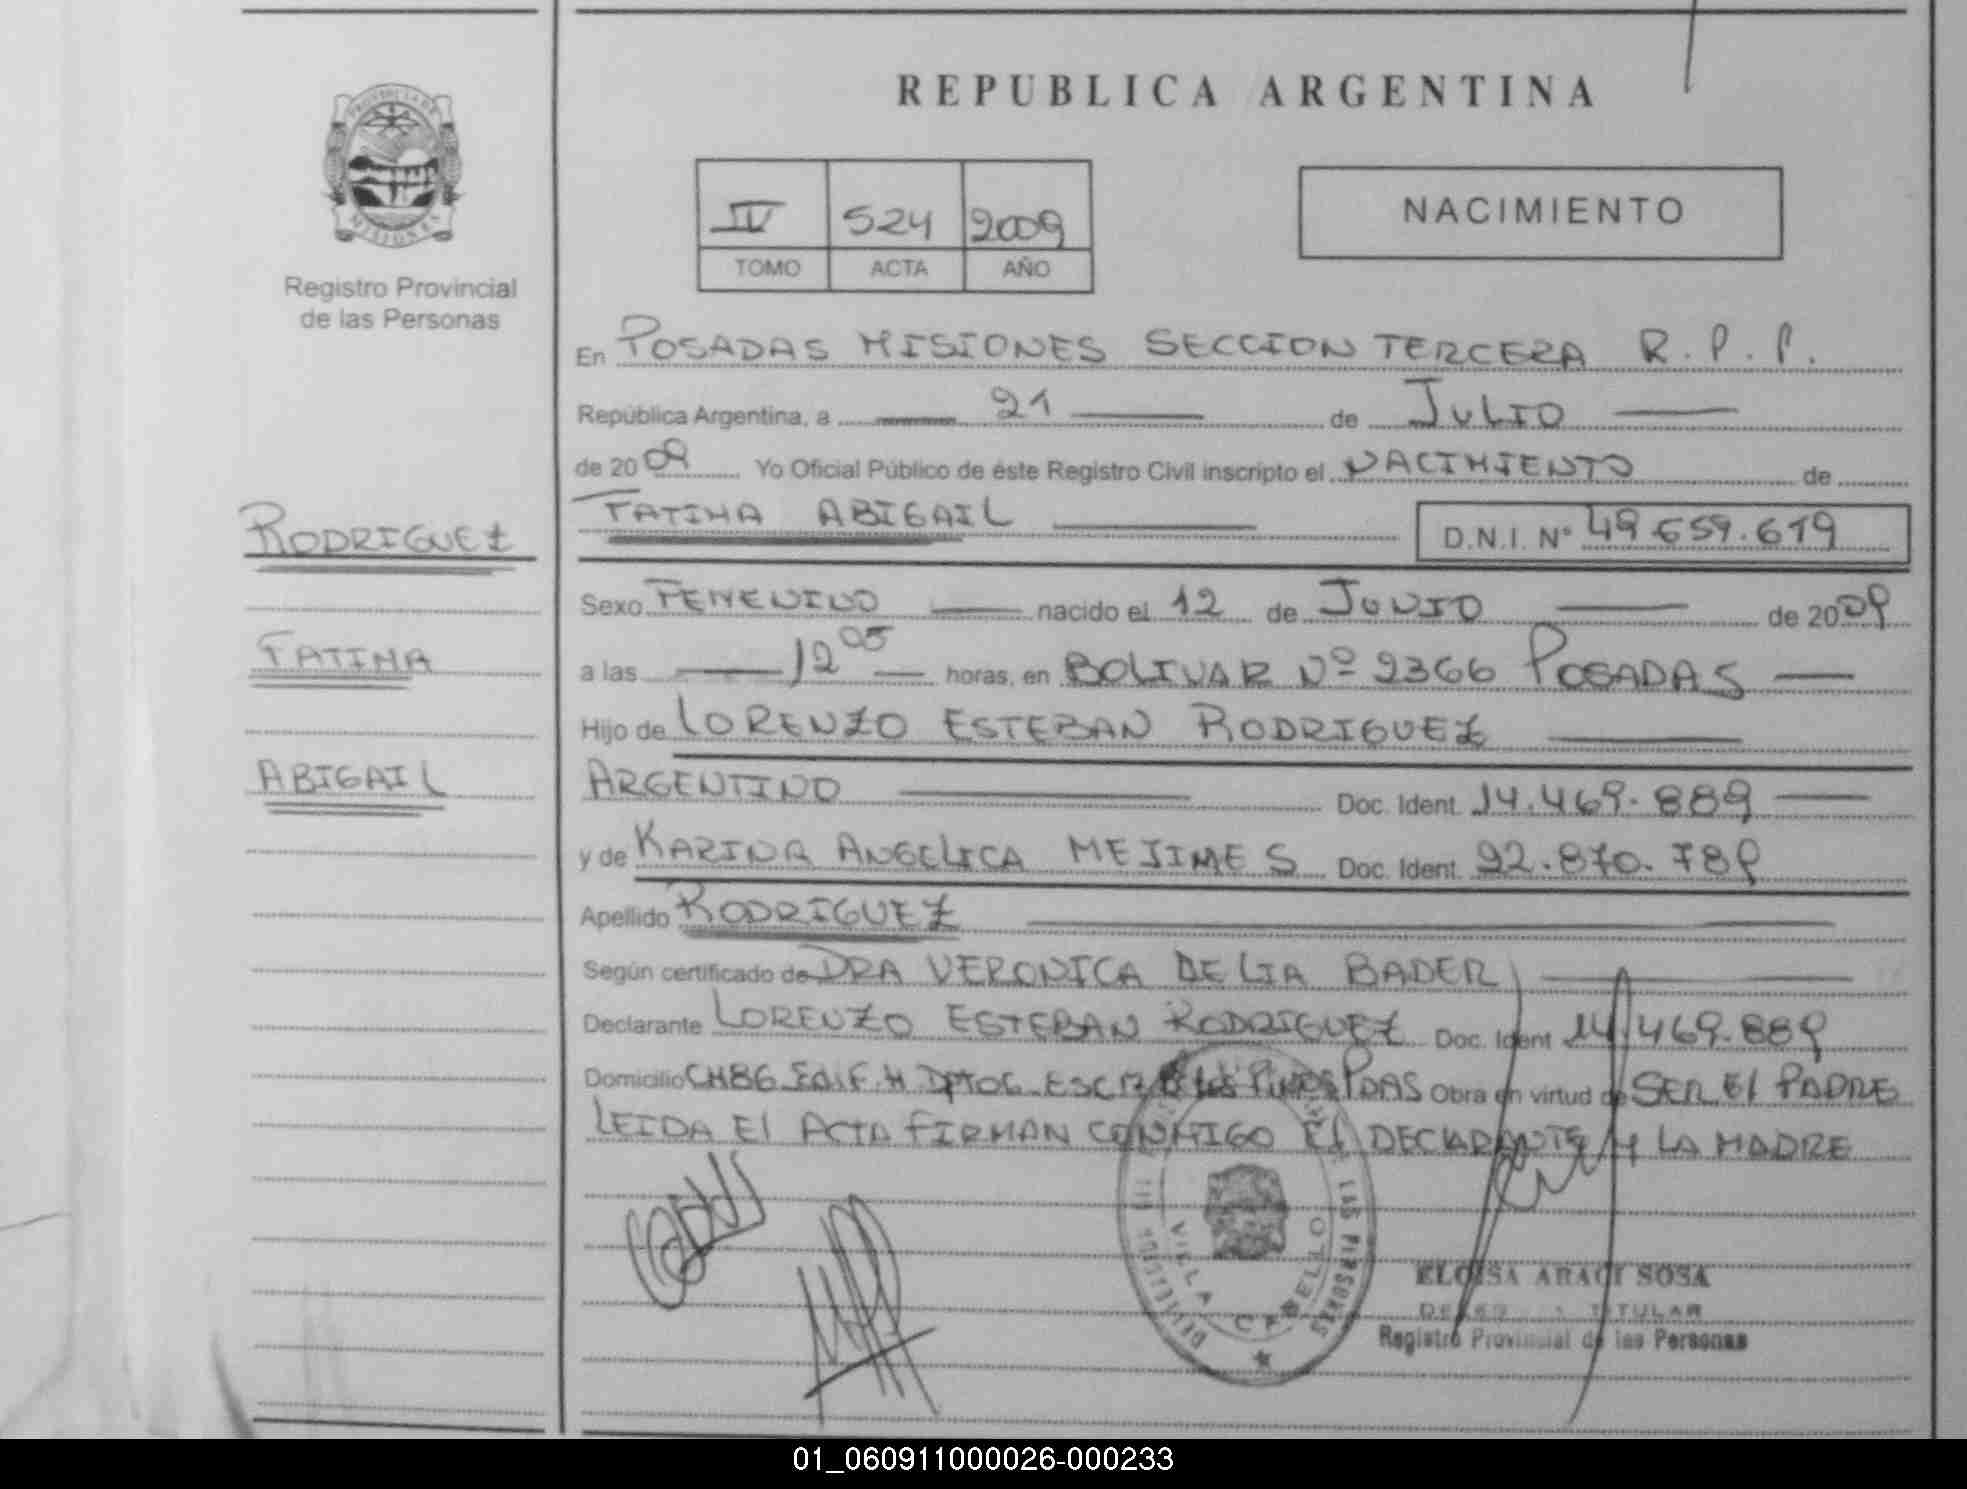 REPUBLICA ARGENTINA
PROVINCIA DE
MISIONES
Registro Provincial
de las Personas
IV 524 2009
TOMO ACTA AÑO
NACIMIENTO
En POSADAS MISIONES SECCION TERCERA R.P.P.
República Argentina, a 21 de JULIO
de 2009 Yo Oficial Público de éste Registro Civil inscripto el NACIMIENTO de
RODRIGUEZ
FATIMA ABIGAIL D.N.I. Nº 49.659.619
Sexo FEMENINO nacido el 12 de JUNIO de 2009
FATIMA
a las 12 05 horas, en BOLIVAR Nº 2366 POSADAS
Hijo de LORENZO ESTEBAN RODRIGUEZ
ABIGAIL
ARGENTINO Doc. Ident. 14.469.889
y de KARINA ANGELICA MEJIMES Doc. Ident. 22.870.789
Apellido RODRIGUEZ
Según certificado de DRA VERONICA DELIA BADER
Declarante LORENZO ESTEBAN RODRIGUEZ Doc. Ident 14.469.889
Domicilio CH86 EDIF.H DPTO6 ESC PDAS Obra en virtud de SER El PADRE
LEIDA El ACTA FIRMAN CONMIGO El DECLARANTE Y LA MADRE
LAS PERSONAS
VILLA CABELLO
ELOISA ARACI SOSA
TITULAR
Registro Provincial de las Personas
01_060911000026-000233